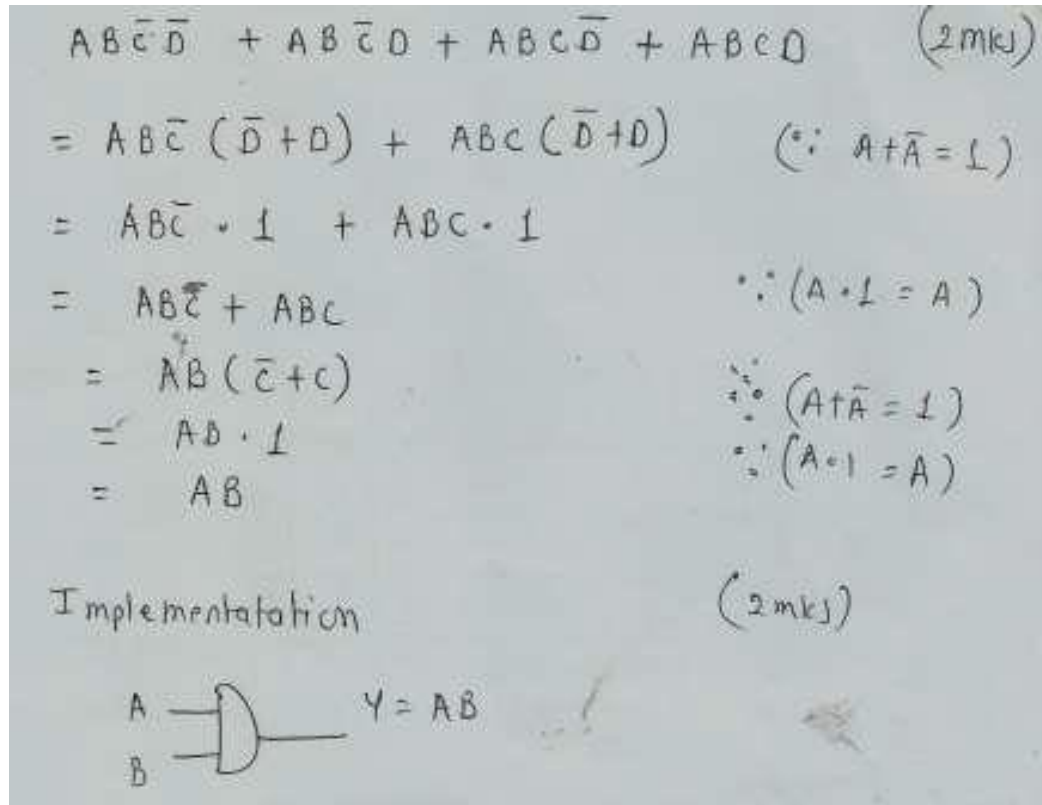 ABC̅D̅ + ABC̅D + ABCD̅ + ABCD (2mks)
= ABC̅ (D̅+D) + ABC (D̅+D) (∵ A+A̅=1)
= ABC̅ . 1 + ABC . 1
= ABC̅ + ABC ∵ (A.1 = A)
= AB (C̅+C) ∵ (A+A̅ = 1)
= AB . 1 ∵ (A.1 = A)
= AB
Implementatation (2mks)
A Y = AB
B